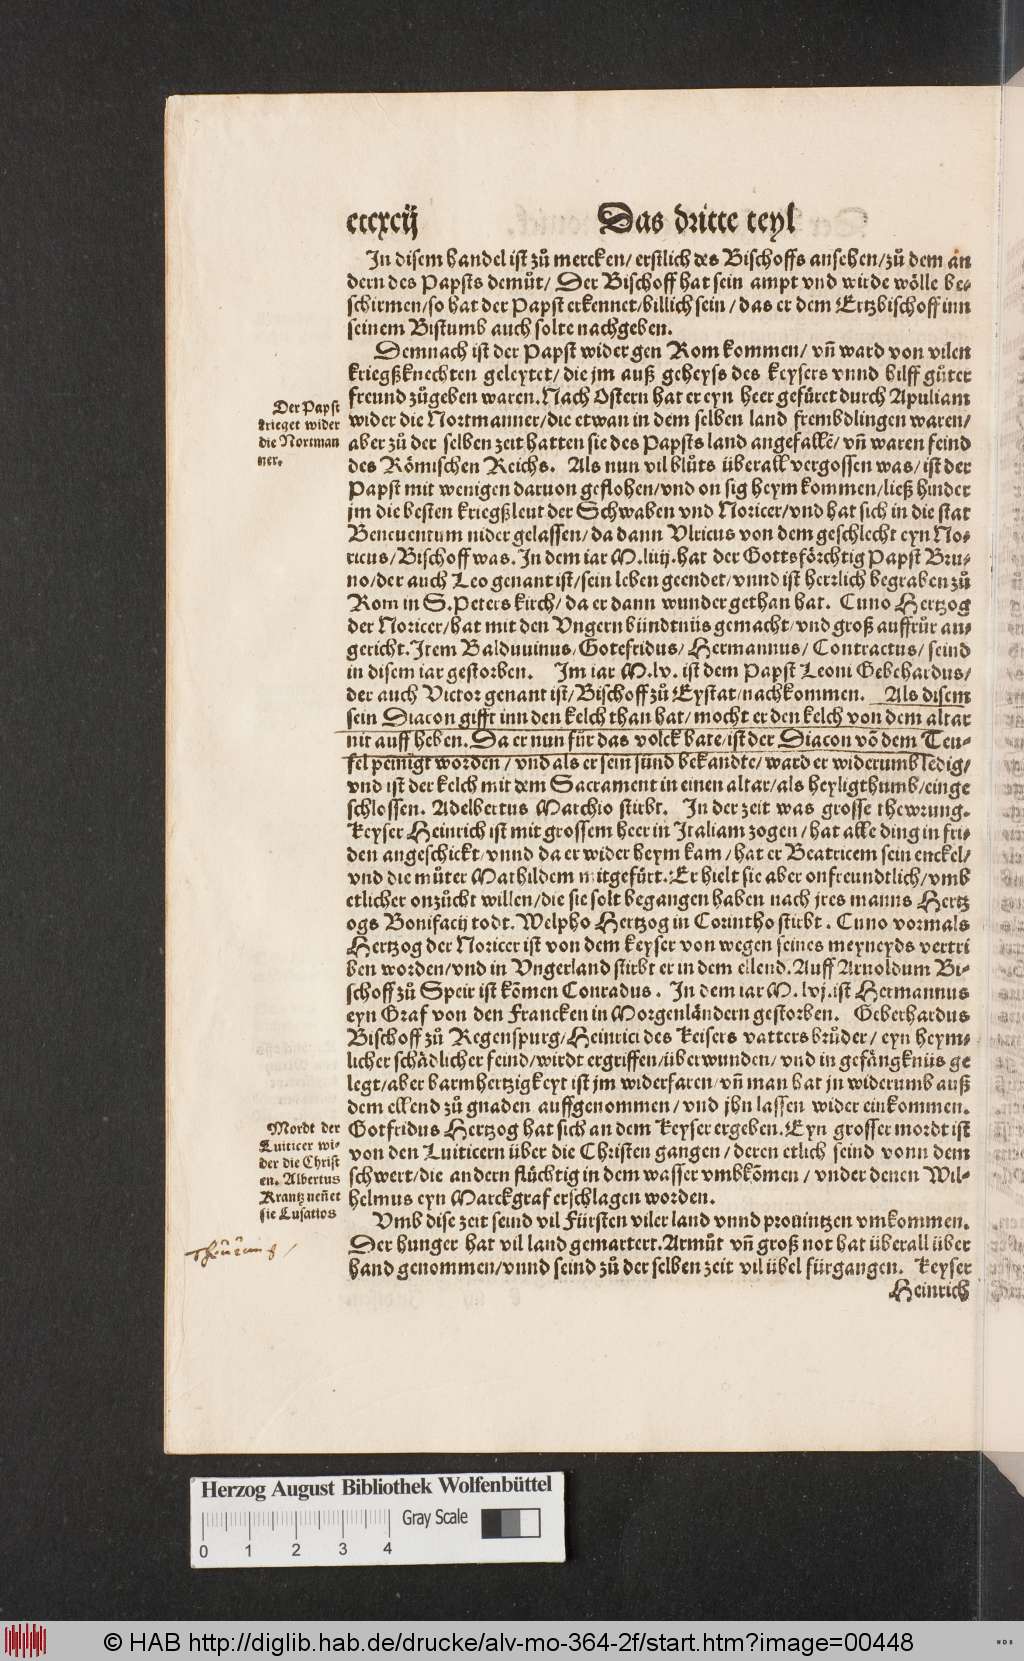 ccccxcij Das dritte teyl
In disem handel ist zů mercken/ erstlich des Bischoffs ansehen/ zů dem an
dern des Papsts demůt/ Der Bischoff hat sein ampt vnd wirde wölle be⸗
schirmen/ so hat der Papst erkennet/ billich sein/ das er dem Ertzbischoff inn
seinem Bistumb auch solte nachgeben.
Demnach ist der Papst wider gen Rom kommen/ vñ ward von vilen
kriegßknechten geleytet/ die jm auß geheyß des keysers vnnd hilff gůter
freund zůgeben waren. Nach Ostern hat er eyn heer gefüret durch Apuliam
wider die Nortmanner/ die etwan in dem selben land frembdlingen waren/
aber zů der selben zeit hatten sie des Papsts land angefallē/ vñ waren feind
des Römischen Reichs. Als nun vil blůts überall vergossen was/ ist der
Papst mit wenigen daruon geflohen/ vnd on sig heym kommen/ ließ hinder
jm die besten kriegßleut der Schwaben vnd Noricer/ vnd hat sich in die stat
Beneuentum nider gelassen/ da dann Vlricus von dem geschlecht eyn No⸗
ricus/ Bischoff was. In dem iar M.liiij. hat der Gottsförchtig Papst Bru⸗
no/ der auch Leo genant ist/ sein leben geendet/ vnnd ist herrlich begraben zů
Rom in S. Peters kirch/ da er dann wunder gethan hat. Cuno Hertzog
der Noricer/ hat mit den Vngern bündtnüs gemacht/ vnd groß auffrůr an⸗
gericht. Item Balduuinus/ Gotefridus/ Hermannus/ Contractus/ seind
in disem iar gestorben. Im iar M.lv. ist dem Papst Leoni Gebehardus/
der auch Victor genant ist/ Bischoff zů Eystat/ nachkommen. Als disem
sein Diacon gifft inn den kelch than hat/ mocht er den kelch von dem altar
nit auff heben. Da er nun für das volck bate/ ist der Diacon vō dem Teu⸗
fel peinigt worden/ vnd als er sein sünd bekandte/ ward er widerumb ledig/
vnd ist der kelch mit dem Sacrament in einen altar/ als heyligthumb/ einge
schlossen. Adelbertus Marchio stirbt. In der zeit was grosse thewrung.
Keyser Heinrich ist mit grossem heer in Italiam zogen/ hat alle ding in fri⸗
den angeschickt/ vnnd da er wider heym kam/ hat er Beatricem sein enckel/
vnd die můter Mathildem mitgefürt. Er hielt sie aber onfreundtlich/ vmb
etlicher onzücht willen/ die sie solt begangen haben nach jres manns Hertz
ogs Bonifacij todt. Welpho Hertzog in Corintho stirbt. Cuno vormals
Hertzog der Noricer ist von dem keyser von wegen seines meyneyds vertri
ben worden/ vnd in Vngerland stirbt er in dem ellend. Auff Arnoldum Bi⸗
schoff zů Speir ist kōmen Conradus. In dem iar M.lvj. ist Hermannus
eyn Graf von den Francken in Morgenländern gestorben. Geberhardus
Bischoff zů Regenspurg/ Heinrici des Keisers vatters brůder/ eyn heym⸗
licher schädlicher feind/ wirdt ergriffen/ überwunden/ vnd in gefängknüs ge
legt/ aber barmhertzigkeyt ist jm widerfaren/ vñ man hat jn widerumb auß
dem ellend zů gnaden auffgenommen/ vnd jhn lassen wider einkommen.
Gotfridus Hertzog hat sich an dem Keyser ergeben. Eyn grosser mordt ist
von den Luiticern über die Christen gangen/ deren etlich seind vonn dem
schwert/ die andern flüchtig in dem wasser vmbkōmen/ vnder denen Wil⸗
helmus eyn Marckgraf erschlagen worden.
Vmb dise zeit seind vil Fürsten viler land vnnd prouintzen vmkommen.
Der hunger hat vil land gemartert. Armůt vñ groß not hat überall über
hand genommen/ vnnd seind zů der selben zeit vil übel fürgangen. Keyser
Heinrich
Der Papst
krieget wider
die Nortman
ner.
Mordt der
Luiticer wi⸗
der die Christ
en. Albertus
Krantz neñet
sie Lusatios
Herzog August Bibliothek Wolfenbüttel
Gray Scale
0 1 2 3 4
© HAB http://diglib.hab.de/drucke/alv-mo-364-2f/start.htm?image=00448